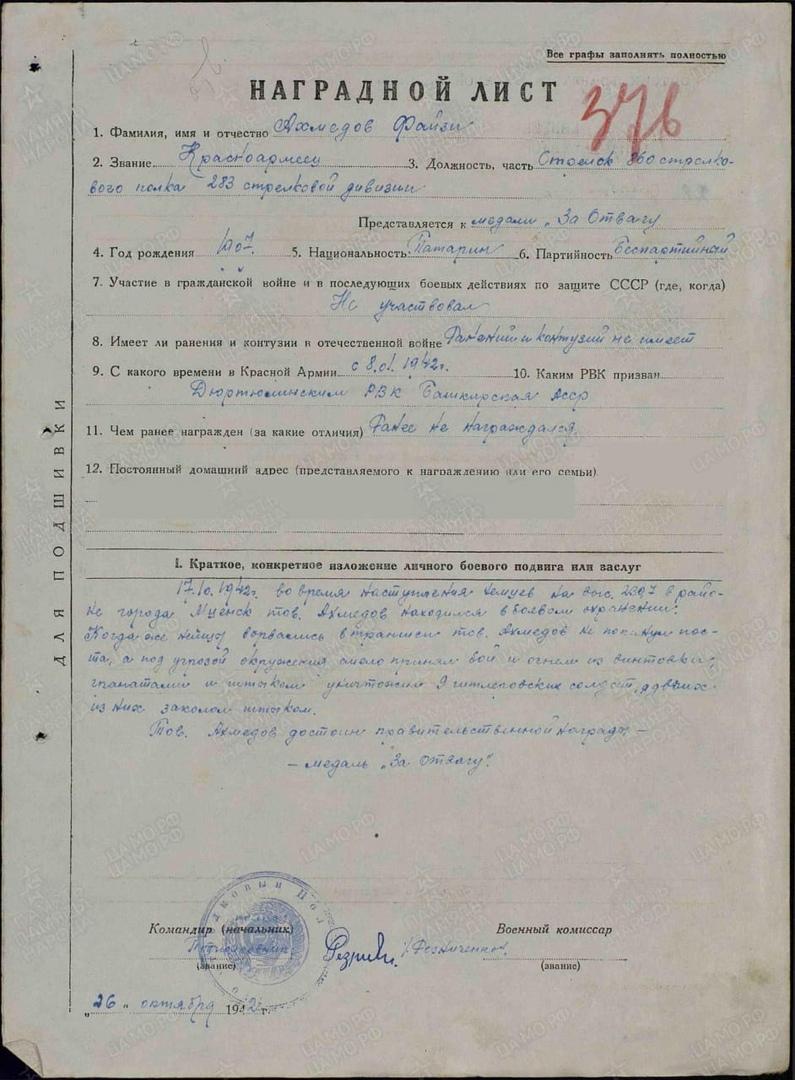 Все графы заполнять полностью
НАГРАДНОЙ ЛИСТ
376
1. Фамилия, имя и отчество Ахмедов Файзи
2. Звание Красноармеец 3. Должность, часть Стрелок 860 стрелко-
вого полка 283 стрелковой дивизии
Представляется к медали „За Отвагу
4. Год рождения 1907 5. Национальность Татарин 6. Партийность Беспартийный
7. Участие в гражданской войне и в последующих боевых действиях по защите СССР (где, когда)
Не участвовал
8. Имеет ли ранения и контузии в отечественной войне Ранений и контузий не имеет
9. С какого времени в Красной Армии с 8.01.1942г. 10. Каким РВК призван
Дюртюлинским РВК Башкирская АССР
11. Чем ранее награжден (за какие отличия) Ранее не награждался
12. Постоянный домашний адрес (представляемого к награждению или его семьи)
I. Краткое, конкретное изложение личного боевого подвига или заслуг
17.10.1942г. во время наступления немцев на выс. 239,7 в райо-
не города Мценск тов. Ахмедов находился в боевом охранении.
Когда же немцы ворвались в траншеи тов. Ахмедов не покинул пос-
та, а под угрозой окружения смело принял бой и огнем из винтовки,
гранатами и штыком уничтожил 9 гитлеровских солдат, двоих
из них заколол штыком.
Тов. Ахмедов достоин правительственной награды –
– медаль „За Отвагу".
Командир (начальник) Военный комиссар
Подполковник /Резниченко/
(звание) (звание)
„26" октября 1942 г.
ДЛЯ ПОДШИВКИ
ЦАМО.РФ